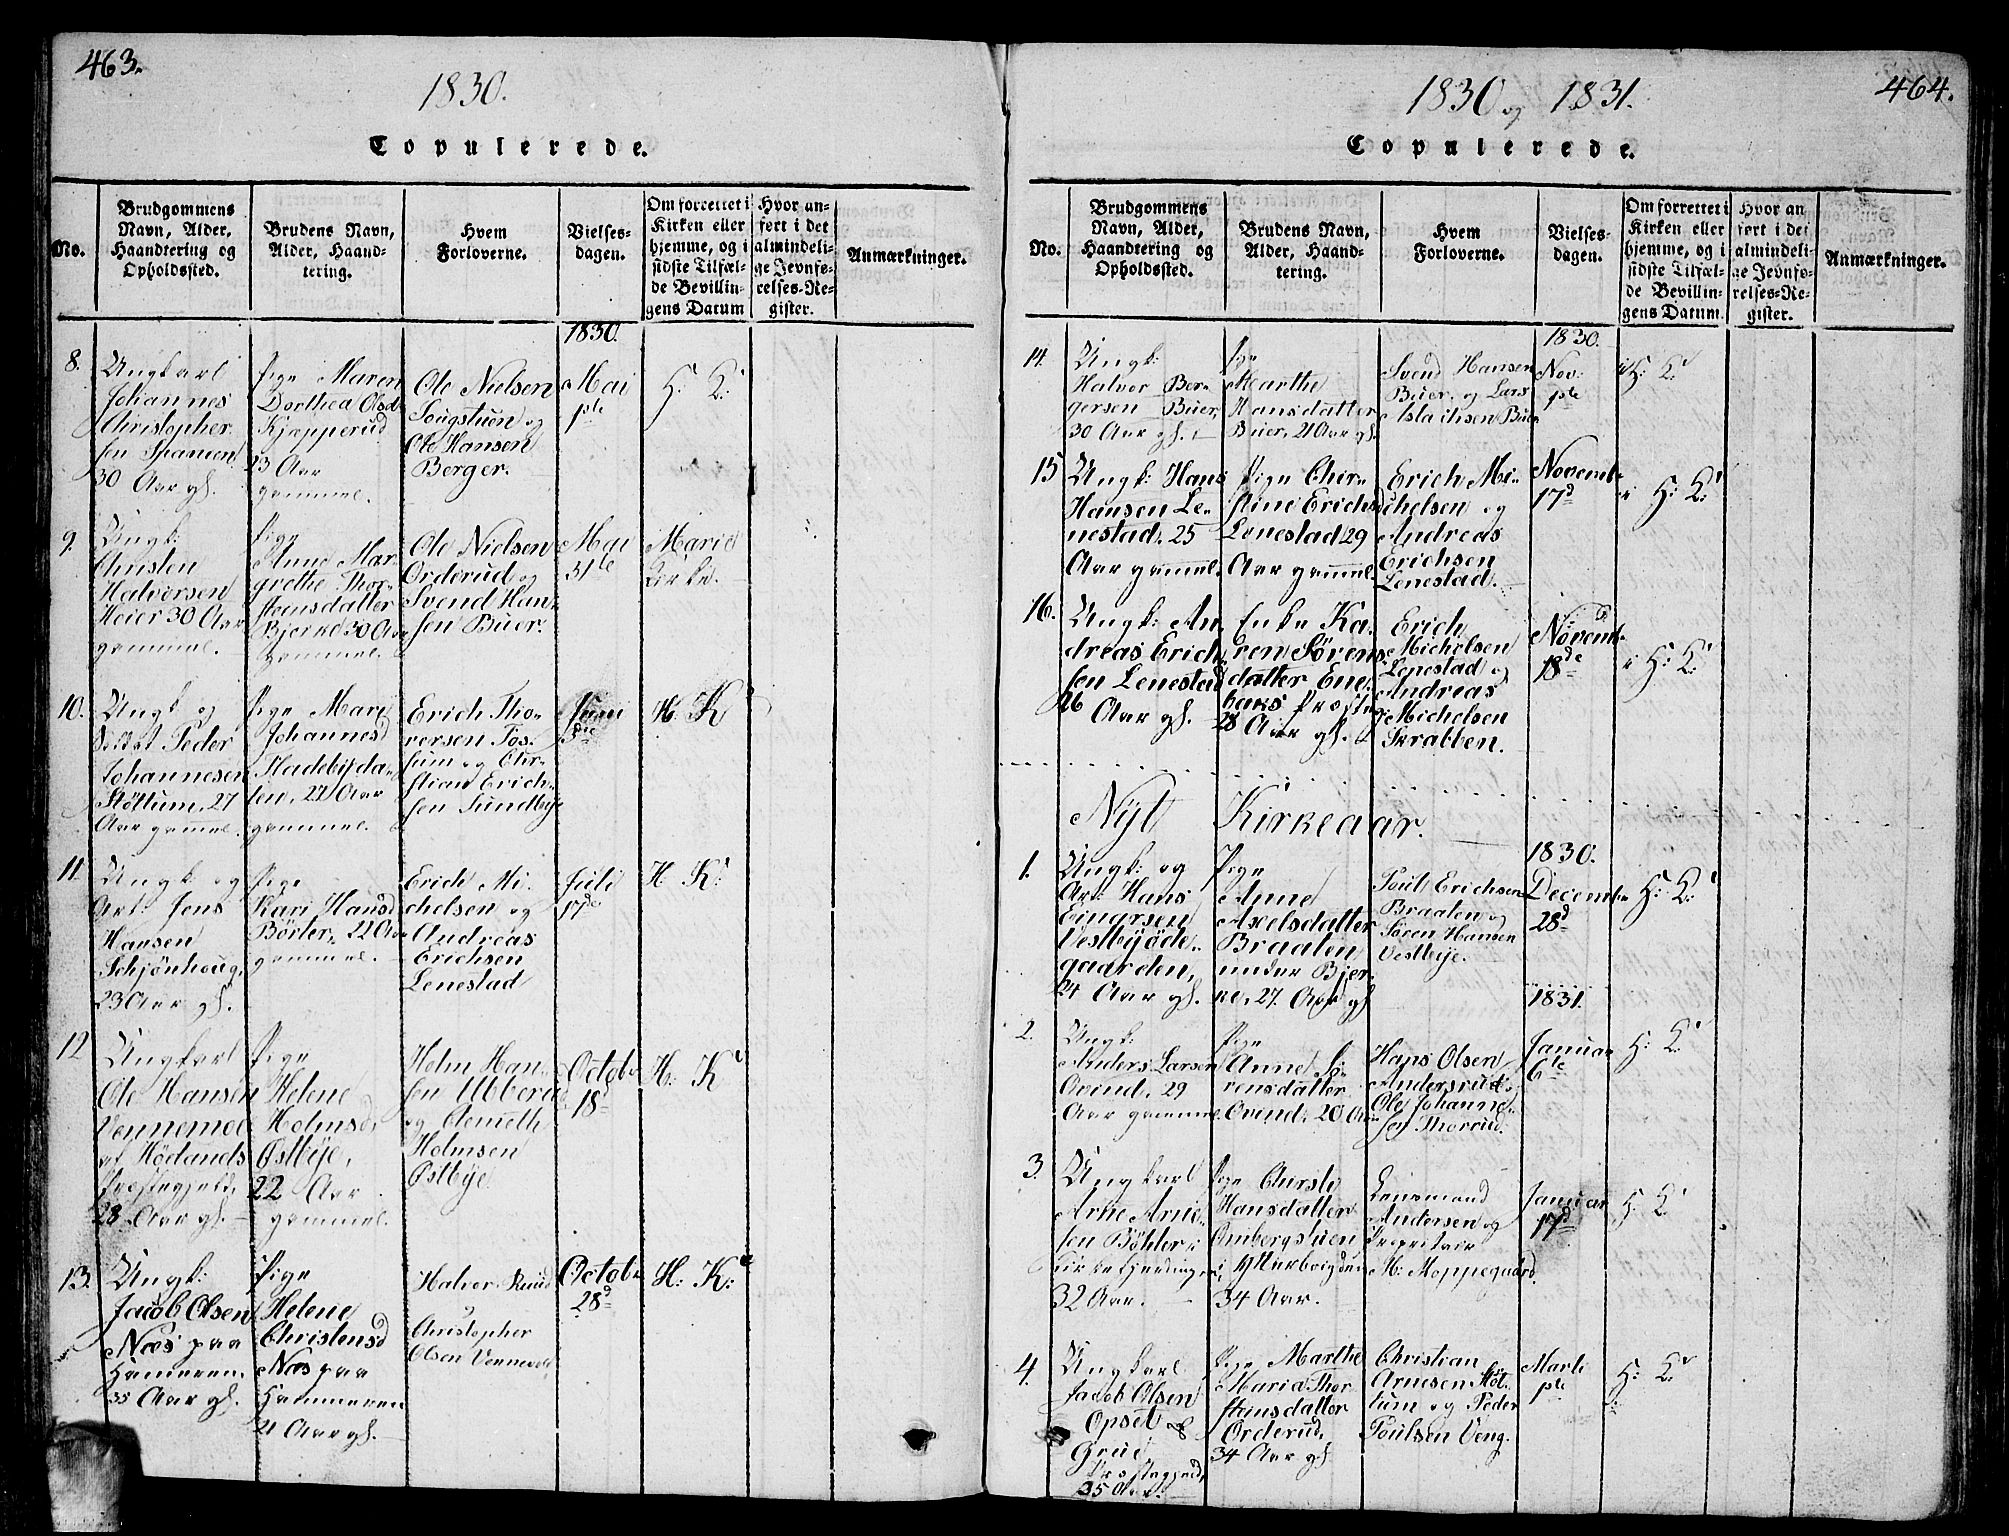 463.
1830.
Copulerede.
No.
Brudgommens
Navn, Alder,
Haandtering og
Opholdssted.
Brudens Navn,
Alder, Haand-
tering.
Hvem
Forloverne.
Vielses-
dagen.
Om forrettet i
Kirken eller
hjemme, og i
sidste Tilfæl-
de Bevillin-
gens Datum
Hvor an-
ført i det
almindeli-
ge Jevnfø-
relses-Re-
gister.
Anmærkninger.
1830.
8.
Ungkarl
Johannes
Christopher
sen Spanien
30 Aar gl.
Pige Maren
Dorthea Olsd
Kjopperud
23 Aar
gammel.
Ole Nielsen
Tougstuen og
Ole Hansen
Berger.
Mai
1ste
H: K:
9.
Ungk:
Christen
Halversen
Heier 30 Aar
gammel.
Pige
Anne Mar-
grethe Thor-
steinsdatter
Bjerke 30 Aar
gammel.
Ole Nielsen
Orderud og
Svend Han-
sen Buer.
Mai
31te
Marie
Kirke.
10.
Ungk. og
Soldat Peder
Johannesen
Støttum, 27
Aar gammel.
Pige Mari
Johannesd
Stadebÿeda-
len, 22 Aar
gammel.
Erich Tho-
rersen Fos-
sum og Chri-
stian Erich-
sen Sundbÿe
Juni
3die
H: K
11.
Ungk og
Art: Jens
Hansen
Schjönhoug,
23 Aar gl.
Pige
Kari Hansd
Börter, 22 Aar
gammel.
Erich Mi-
chelsen og
Andreas
Erichsen
Lenestad
Juli
17de
H K:
12
Ungkarl
Ole Hansen
Vennemoe
af Hödlands
Præstegjeld,
28 Aar gl.
Pige
Helene
Holmsd,
Østbÿe,
22 Aar
gammel.
Holm Han-
sen Ubberud
og Clemeth
Holmsen
Østbÿe
Octobr
18d
H: K
13.
Ungk:
Jacob Olsen
Næs paa
Hammeren.
35 Aar gl.
Pige
Helene
Christensd
Næs paa
Hammeren
21 Aar gl.
Halvor Ruud
og
Christopher
Olsen Vennevold
Octobr
28d
H: K:
464.
1830 og 1831.
Copulerede.
No.
Brudgommens
Navn, Alder,
Haandtering og
Opholdssted.
Brudens Navn,
Alder, Haand-
tering.
Hvem
Forloverne.
Vielses-
dagen.
Om forrettet i
Kirken eller
hjemme, og i
sidste Tilfæl-
de Bevillin-
gens Datum.
Hvor an
ført i det
almindeli-
ge Jevnfø-
relses-Re-
gister.
Anmærkninger.
1830.
14.
Ungk:
Halvor Ber-
gersen Buer,
30 Aar gl.
Pige
Marthe
Hansdatter
Buer, 21 Aar gl.
Svend Hansen
Buer, og Lars
Aslachsen Buer
Nov:
1ste
i H: K:
15
Ungk: Hans
Hansen Le-
nestad. 25
Aar gammel.
Pige Chri-
stine Erichsd
Lenestad 29
Aar gammel.
Erich Mi-
chelsen og
Andreas
Erichsen
Lenestad.
Novembr
17d
i H: K:
16.
Ungk: An-
dreas Erich
sen Lenestad
26
Aar gl.
Enke Ka-
ren Sørens-
datter Ene-
baks Præstg
28 Aar gl.
Erich
Michelsen
Lenestad og
Andreas
Michelsen
Skrabben.
Novemb
18de
i H: K:
Nÿt Kirkeaar.
1830.
1.
Ungk: og
Art: Hans
Einarsen
Vestbÿöde-
gaarden,
24 Aar gl.
Pige
Anne
Axelsdatter
Braaten
under Bjer-
ke, 27. Aar gl
Poul Erichsen
Braaten og
Søren Hansen
Vestbÿe.
Decembr
28d
H: K:
1831.
2.
Ungk:
Anders Larsen
Ovind, 29
Aar gammel
Pige
Anne Sö-
rensdatter
Ovind, 20 Aar
Hans Olsen
Andersrud og
Ole Johanne-
sen Thorrud.
Januar
6te
H: K:
3.
Ungkarl
Arne Arne-
sen Böhler i
Kirkefjerdingen,
32 Aar.
Pige Aurste
Hansdatter
Ombergstuen
i
34 Aar.
Lensmand
Andersen og
Proprietair
M: Moppegaard.
Januar
17d
H: K:
4.
Ungkarl
Jacob Olsen
Opset af
Grue
Præstegjeld,
35 Aar.
Pige Marthe
Maria Thor
steinsdatter
Orderud,
34 Aar gl
Christian
Arnesen Støt-
tum og Peder
Poulsen Veng.
Marti
1ste
H: K: